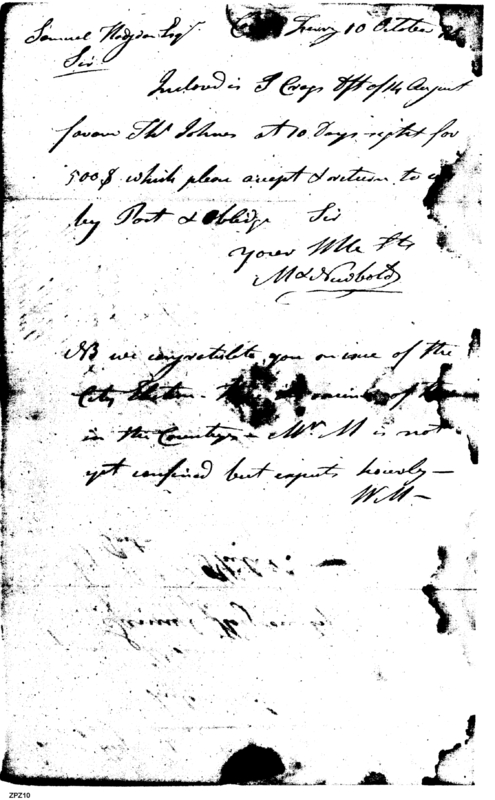 Samuel Hodgdon Esqr 10 October
Sir
Inclosed is J Craps Dft of 14 August
favour Thos Johnes at 10 Days sight for
500$ which please accept & return to
by Post & Oblige Sir
yours
M & Newbold
NB we congratulate you on issue of the
City Election
in the Country - Mrs M is not
yet confined but expects hourly -
W M -
ZPZ10